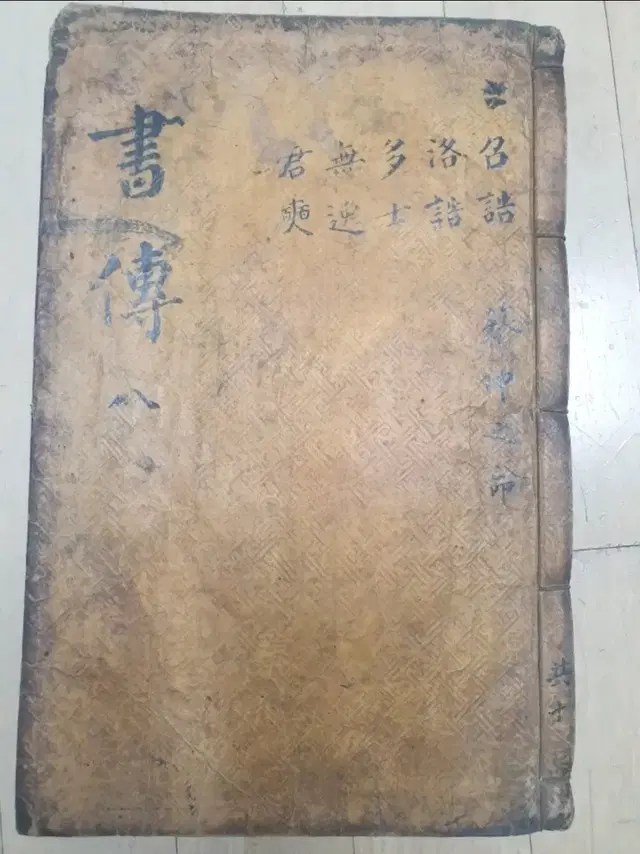 共十
召誥 蔡仲之命
洛誥
多士
無逸
君奭
書傳 八